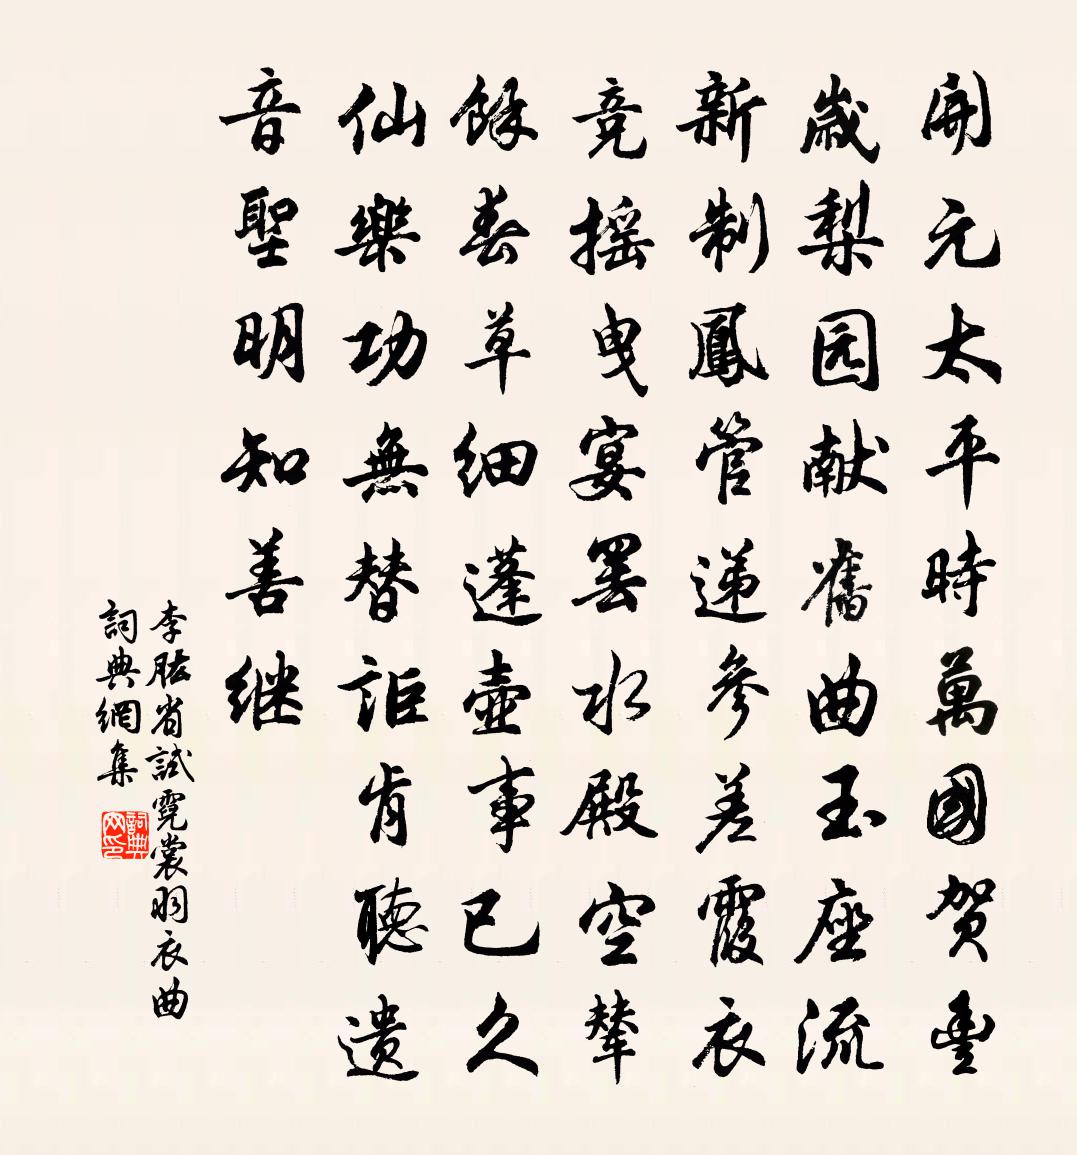 開元太平時萬國賀豐
歲梨园献舊曲玉座流
新制鳳管递參差霞衣
竞摇曳宴罢水殿空辇
餘春草细蓬壶事已久
仙樂功無替詎肯聽遗
音聖明知善继
李肱省試霓裳羽衣曲
詞典網集
詞典网印